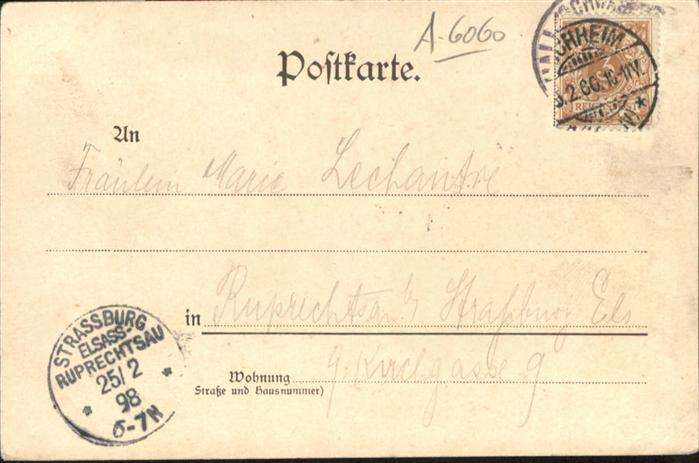 A-6060
Postkarte.
An
Fräulein Marie Lechantre
in Ruprechtsau b Straßburg Els
Wohnung
Straße und Hausnummer)
9 Kirchgasse 9
CHHEIM
.2.
REIC
STRASSBURG
ELSASS-
RUPRECHTSAU
25/2
98
6-7N